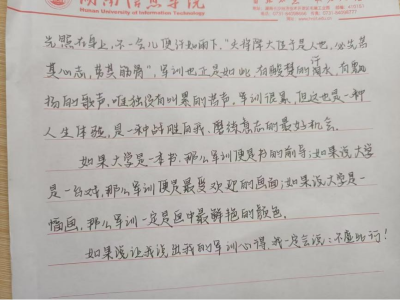 湖南信息学院
Hunan University of Information Technology
光照在身上,不一会儿便汗如雨下,"天将降大任于是人也,必先苦
其心志,劳其筋骨",军训也正是如此,有酸楚的汗水,有飘
扬的歌声,唯独没有叫累的苦声,军训很累,但这也是一种
人生体验,是一种战胜自我,磨练意志的最好机会。
如果大学是一本书,那么军训便是书的前言;如果说大学
是一台戏,那么军训便是最受欢迎的画面;如果说大学是一
幅画,那么军训一定是画中最鲜艳的颜色。
如果说让我说出我的军训心得,我一定会说:不虚此行!